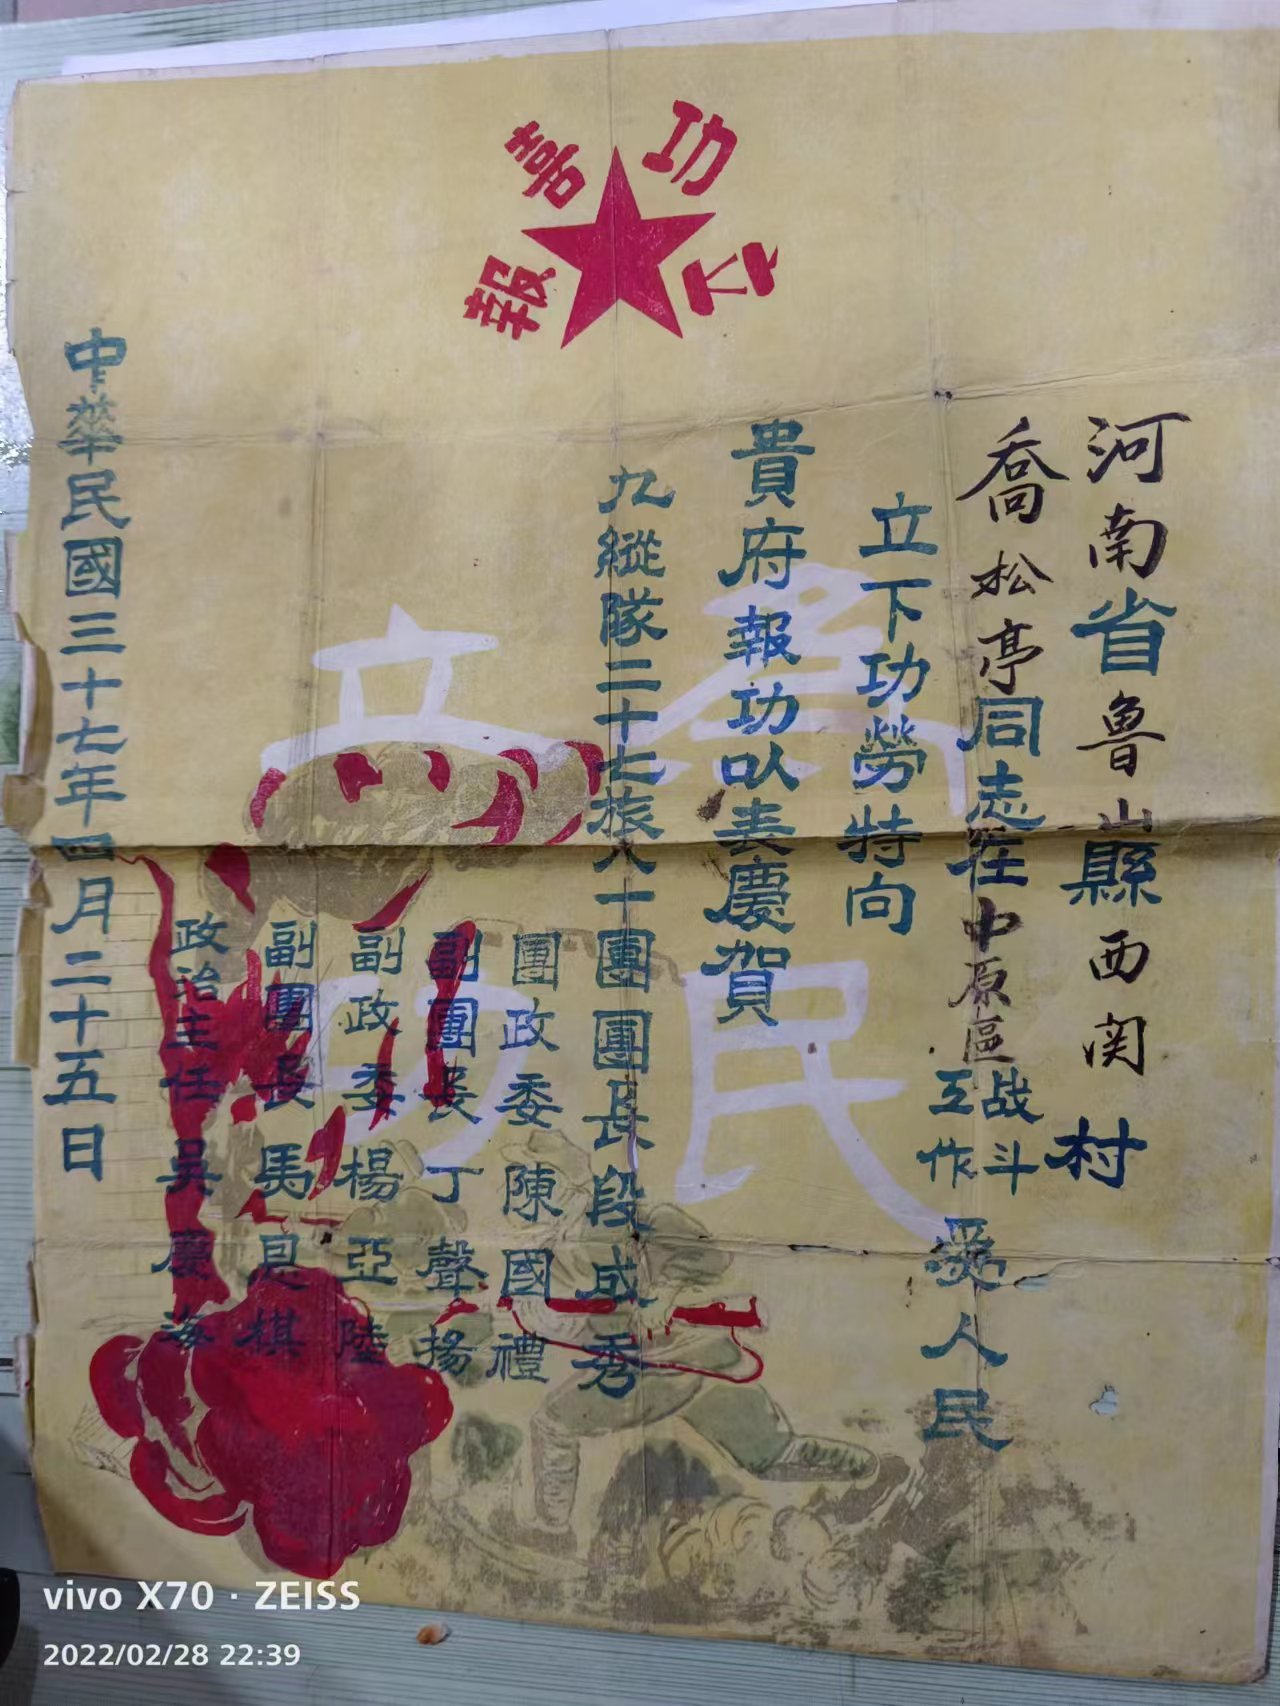 立功喜報
河南省魯山縣西関村
喬松亭同志在中原區战斗工作愛人民
立下功勞特向
貴府報功以表慶賀
九縱隊二十七旅八一團團長段成秀
團政委陳國禮
副團長丁聲揚
副政委楊亞陸
副團長馬息棋
政治主任吳慶海
中華民國三十七年四月二十五日
為民立功
vivo X70 · ZEISS
2022/02/28 22:39